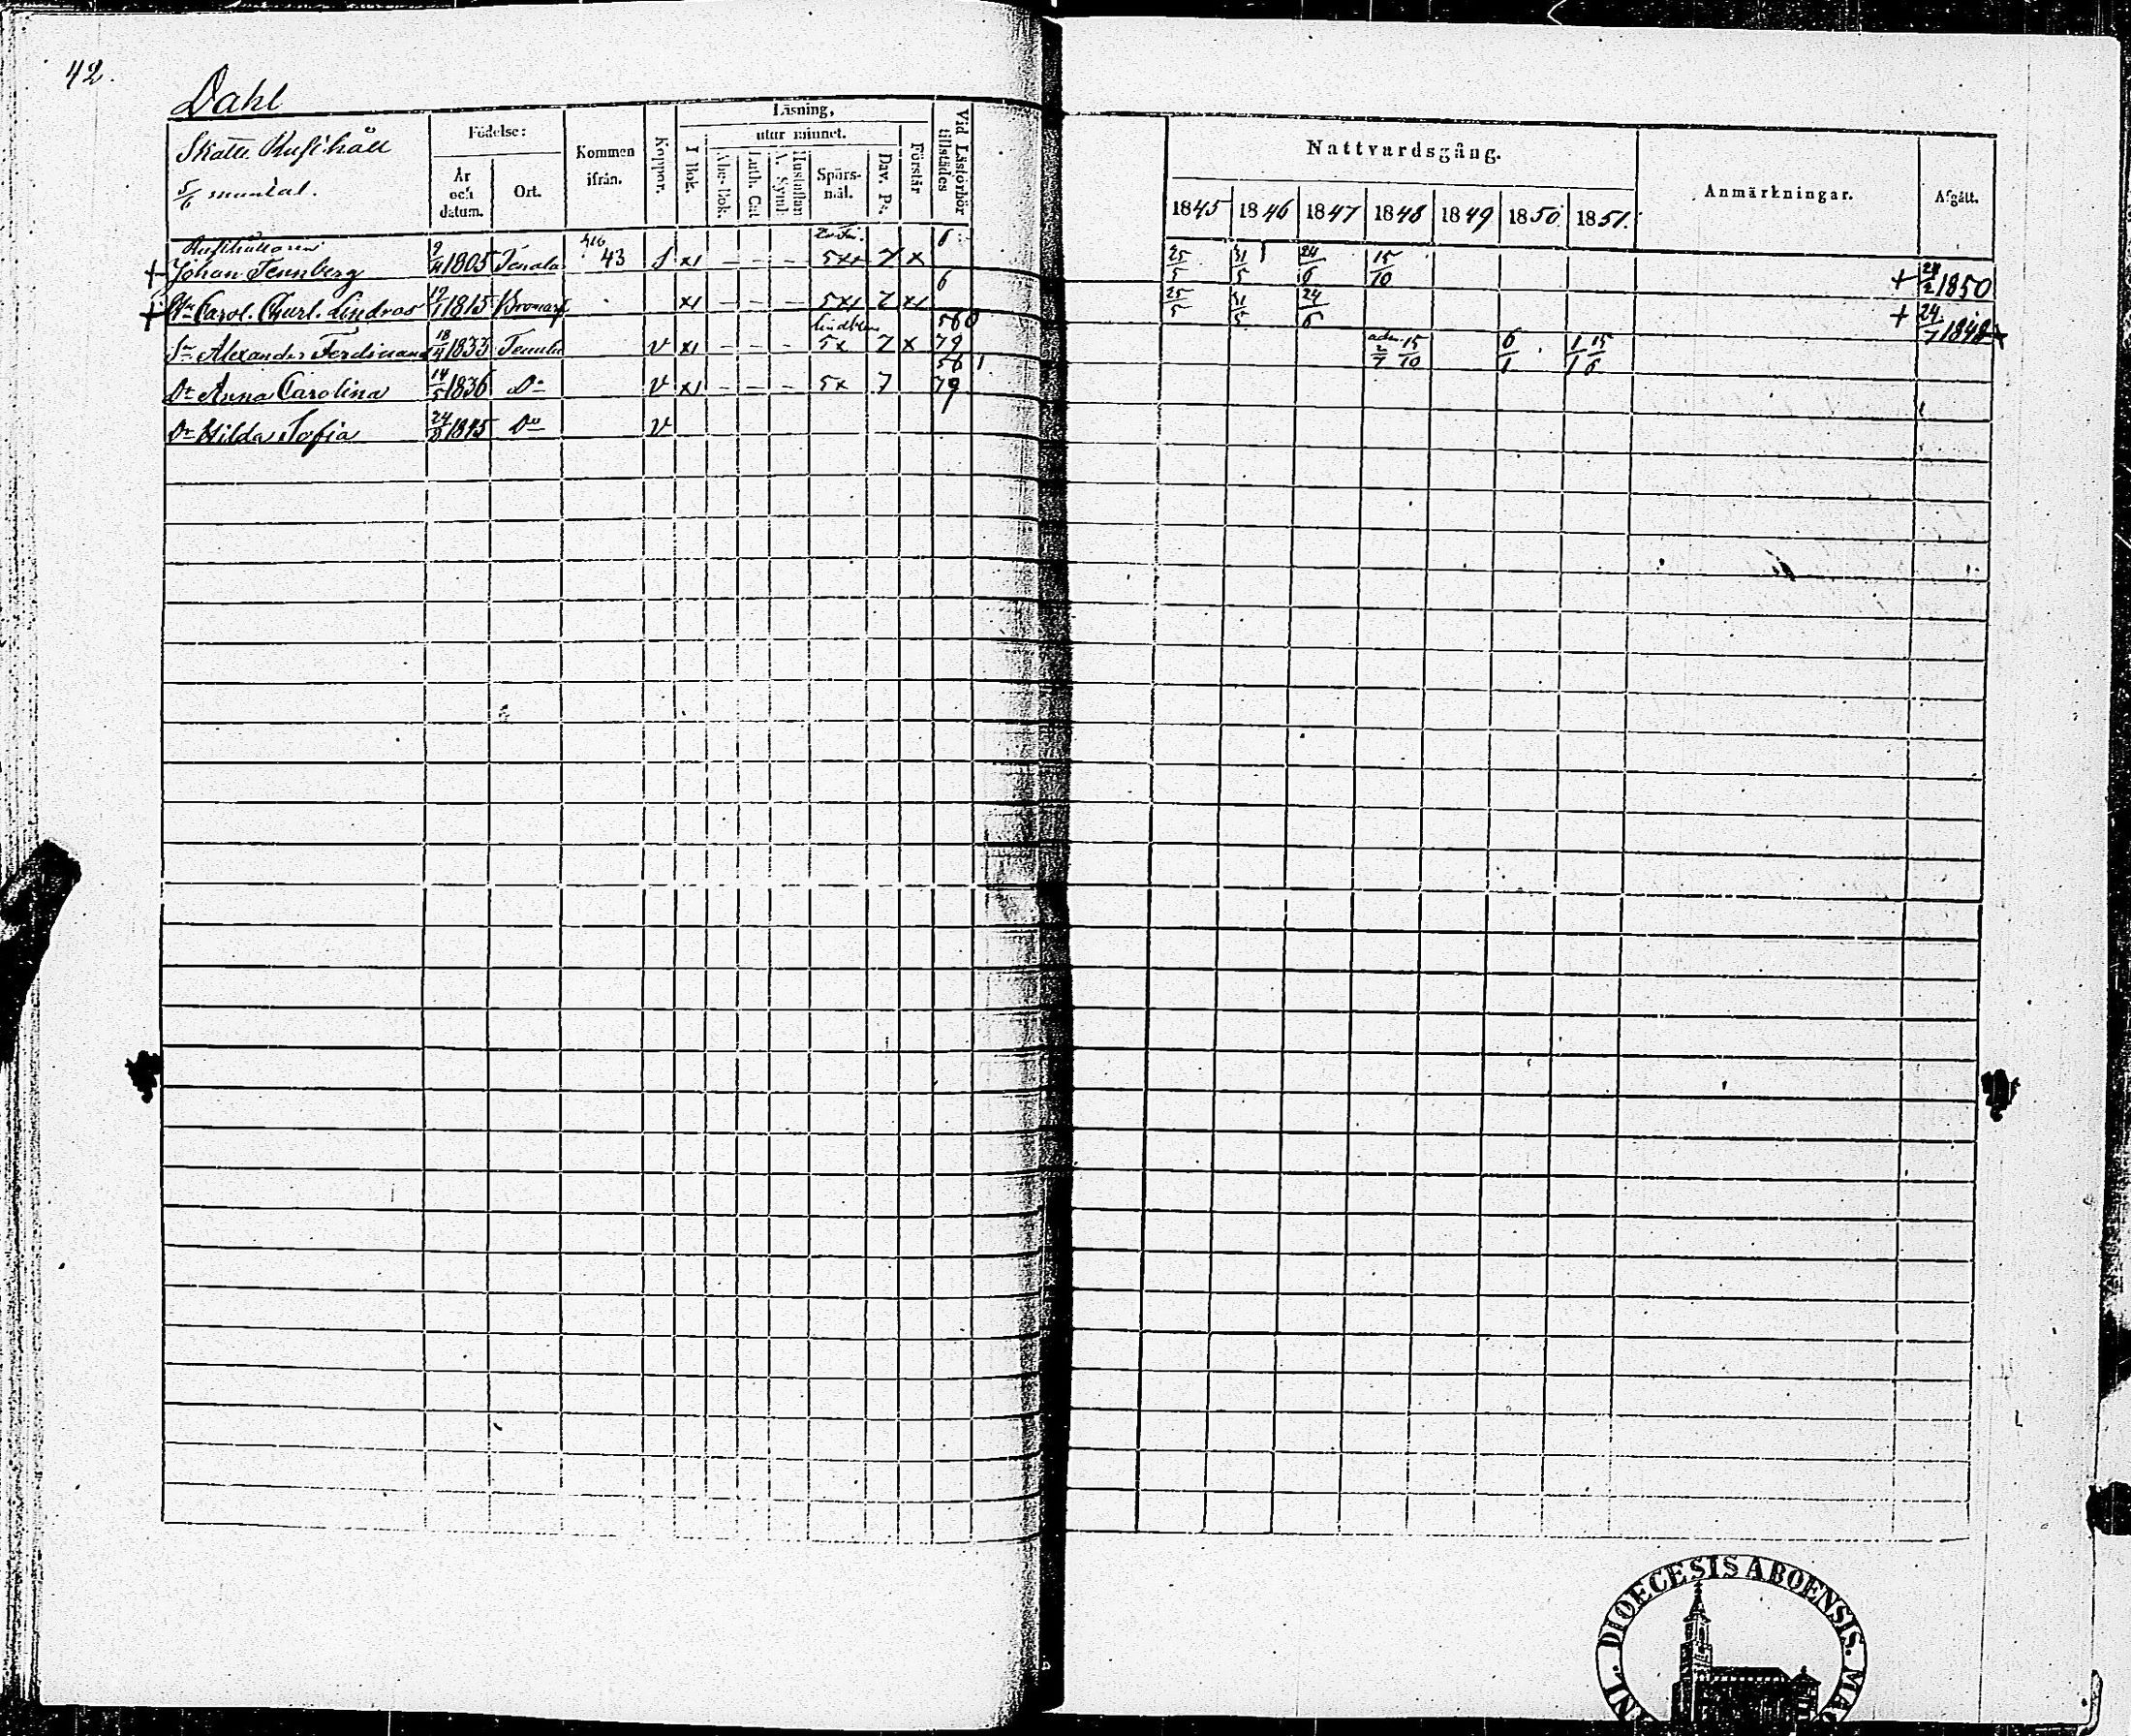 42.
Dahl
Skatte Rusthåll
5/6 mantal.
Födelse:
År och datum.
Ort.
Kommen ifrån.
Koppor.
Läsning,
I Bok.
utur minnet.
Abc-Bok.
Luth. Cat.
A. Symb.
Hustaflan
Spörs-mål.
Dav. Ps.
Förstår
Vid Läsförhör tillstädes
Nattvardsgång.
1845 1846 1847 1848 1849 1850 1851.
Anmärkningar.
Afgått.
Rusthållaren
+ Johan Tennberg 9/4 1805 Tenala 43 x1 – – – 5x1 7 x 6 25/5 31/5 24/6 15/10 + 24/2 1850
+ Carol. Charl. Lindroos 1815 Bromarf x1 – – – 5x1 7 x1 6 25/5 31/5 24/6 + 24/7 1848
Sn Alexander Ferdinand 18/4 1833 Tenala v x1 – – – 5x 7 x 560 79 adm. 2/7 15/10 6/1 1/1 15/6
Dr Anna Carolina 14/5 1836 Do v x1 – – – 5x 7 561 79
Dr Hilda Sofia 24/8 1845 Do v
DIOECESIS ABOENSIS.